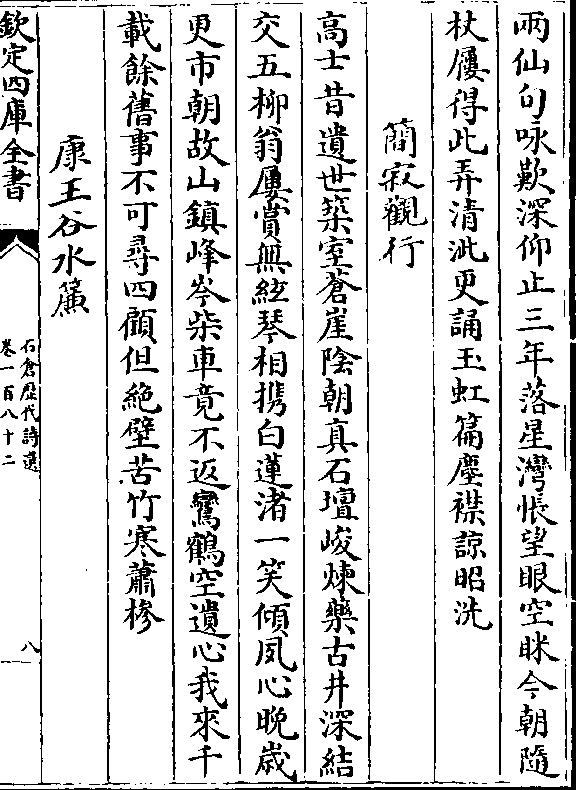 兩仙句咏歎深仰止三年落星灣悵望眼空眯今朝隨
杖屨得此弄清泚更誦玉虹篇塵襟諒昭洗
簡寂觀行
高士昔遺世築室蒼崖陰朝真石壇峻煉藥古井深結
交五柳翁屢賞無絃琴相攜白蓮渚一笑傾夙心晚歲
更市朝故山鎮峰岑柴車竟不返鸞鶴空遺心我來千
載餘舊事不可尋四顧但絶壁苦竹寒蕭槮
康王谷水簾
欽定四庫全書
石倉歷代詩選
卷一百八十二
八